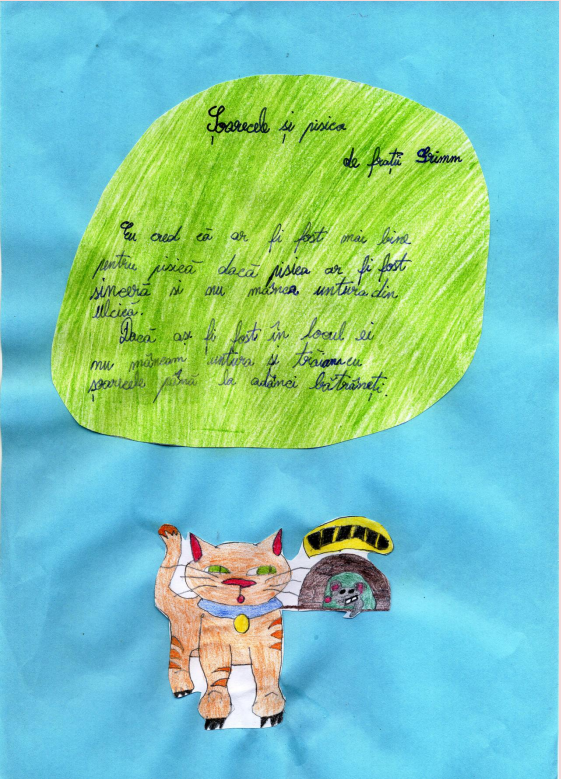 Șoarecele și pisica
de frații Grimm
Eu cred că ar fi fost mai bine
pentru pisică dacă pisica ar fi fost
sinceră si nu mânca untura din
ulcică.
Dacă aș fi fost în locul ei
nu mâncam untura și trăiam cu
șoarecele până la adânci bătrâneți.